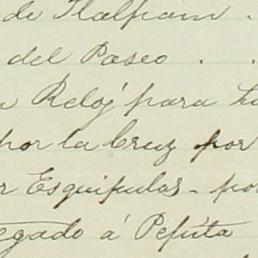 de Tlalpam .
del Paseo . .
Reloj para
por la Cruz por
r Esquipulas - po
egado á Pepita